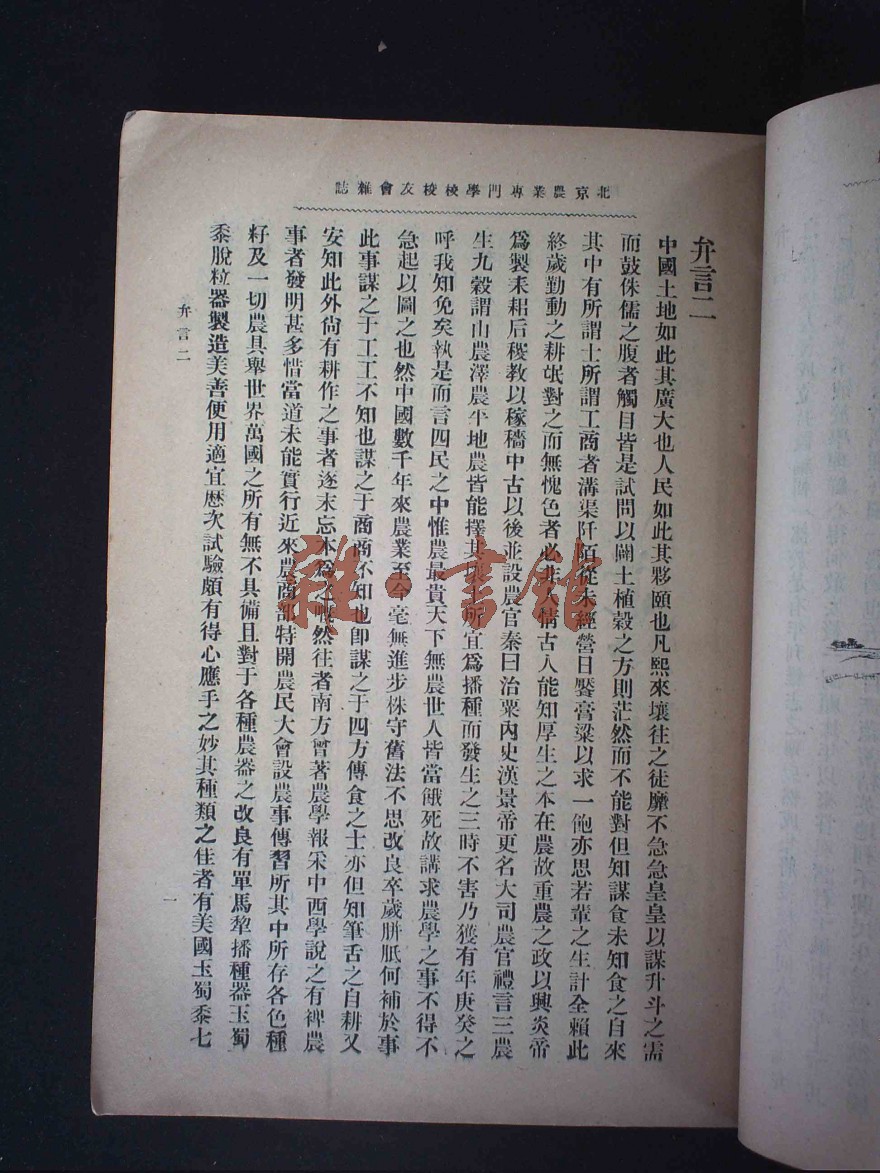 北京農業專門學校校友會雜誌
弁言二
中國土地如此其廣大也人民如此其夥頤也凡熙來壤往之徒靡不急急皇皇以謀升斗之需
而鼓侏儒之腹者觸目皆是試問以闢土植穀之方則茫然而不能對但知謀食未知食之自來
其中有所謂士所謂工商者溝渠阡陌從未經營日饜膏粱以求一飽亦思若輩之生計全賴此
終歲勤動之耕氓對之而無愧色者必非人情古人能知厚生之本在農故重農之政以興炎帝
爲製耒耜后稷教以稼穡中古以後並設農官秦曰治粟內史漢景帝更名大司農官禮言三農
生九穀謂山農澤農平地農皆能擇其壤土所宜爲播種而發生之三時不害乃獲有年庚癸之
呼我知免矣執是而言四民之中惟農最貴天下無農世人皆當餓死故講求農學之事不得不
急起以圖之也然中國數千年來農業至今毫無進步株守舊法不思改良卒歲胼胝何補於事
此事謀之于工工不知也謀之于商商不知也卽謀之于四方傳食之士亦但知筆舌之自耕又
安知此外尙有耕作之事者逐末忘本爲之慨然往者南方曾著農學報采中西學說之有裨農
事者發明甚多惜當道未能實行近來農商部特開農民大會設農事傳習所其中所存各色種
籽及一切農具舉世界萬國之所有無不具備且對于各種農器之改良有單馬犂播種器玉蜀
黍脫粒器製造美善便用適宜歷次試驗頗有得心應手之妙其種類之佳者有美國玉蜀黍七
弁言二
一
雜·書館